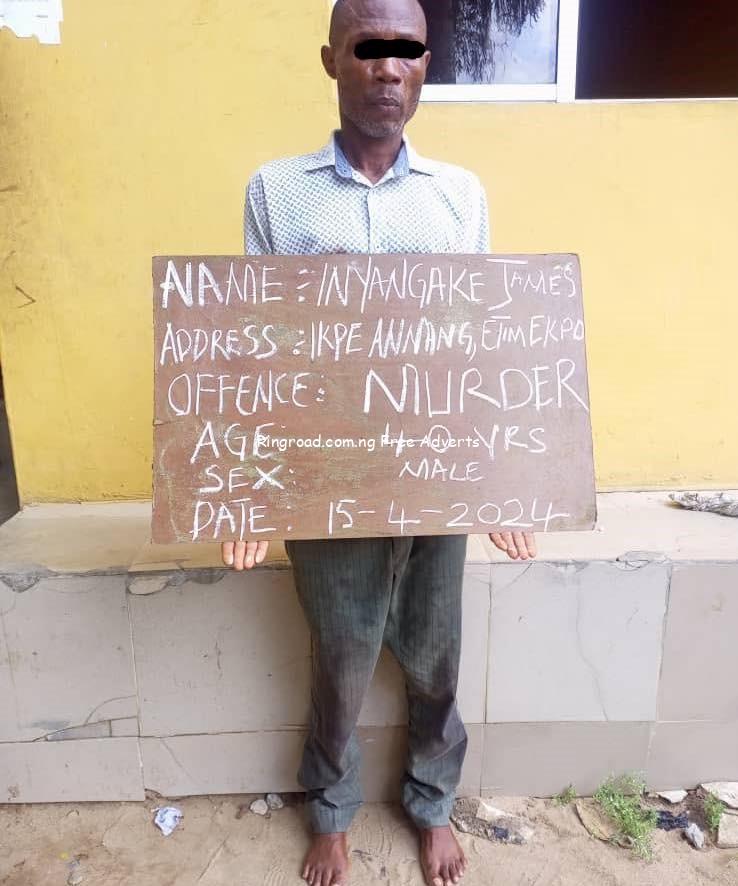 NAME :- INYANGAKE JAMES
ADDRESS :- IKPE ANNANG, ETIM EKPO
OFFENCE: MURDER
AGE: 40 YRS
Ringroad.com.ng Free Adverts
SEX: MALE
DATE: 15-4-2024